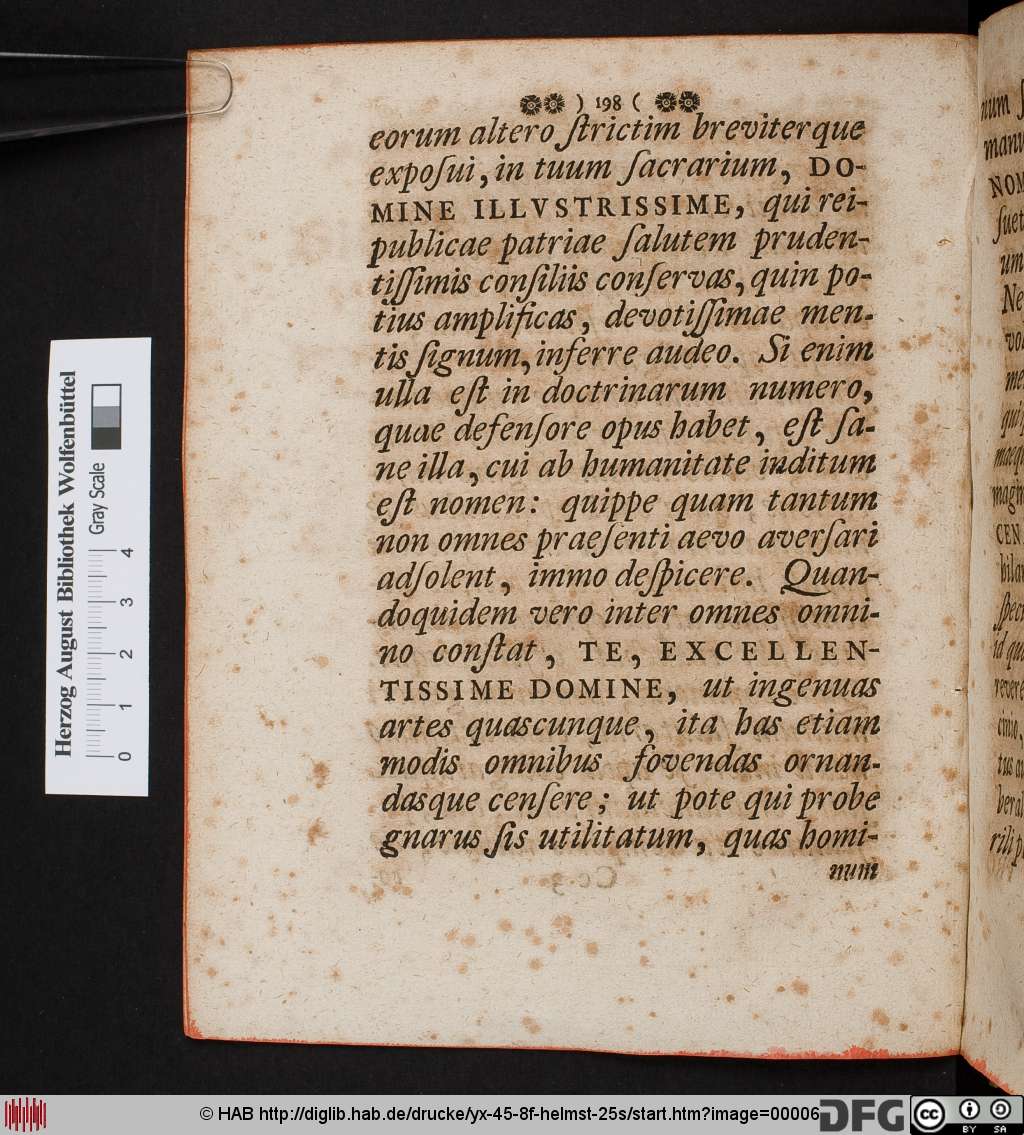 ) 198 (
eorum altero ſtrictim breviterque
expoſui, in tuum ſacrarium, DO-
MINE ILLVSTRISSIME, qui rei-
publicae patriae ſalutem pruden-
tiſſimis conſiliis conſervas, quin po-
tius amplificas, devotiſſimae men-
tis ſignum, inferre audeo. Si enim
ulla eſt in doctrinarum numero,
quae defenſore opus habet, eſt ſa-
ne illa, cui ab humanitate inditum
eſt nomen: quippe quam tantum
non omnes praeſenti aevo averſari
adſolent, immo deſpicere. Quan-
doquidem vero inter omnes omni-
no conſtat, TE, EXCELLEN-
TISSIME DOMINE, ut ingenuas
artes quascunque, ita has etiam
modis omnibus fovendas ornan-
dasque cenſere; ut pote qui probe
gnarus ſis utilitatum, quas homi-
num
Herzog August Bibliothek Wolfenbüttel
Gray Scale
0 1 2 3 4
© HAB http://diglib.hab.de/drucke/yx-45-8f-helmst-25s/start.htm?image=00006
DFG
cc
BY SA